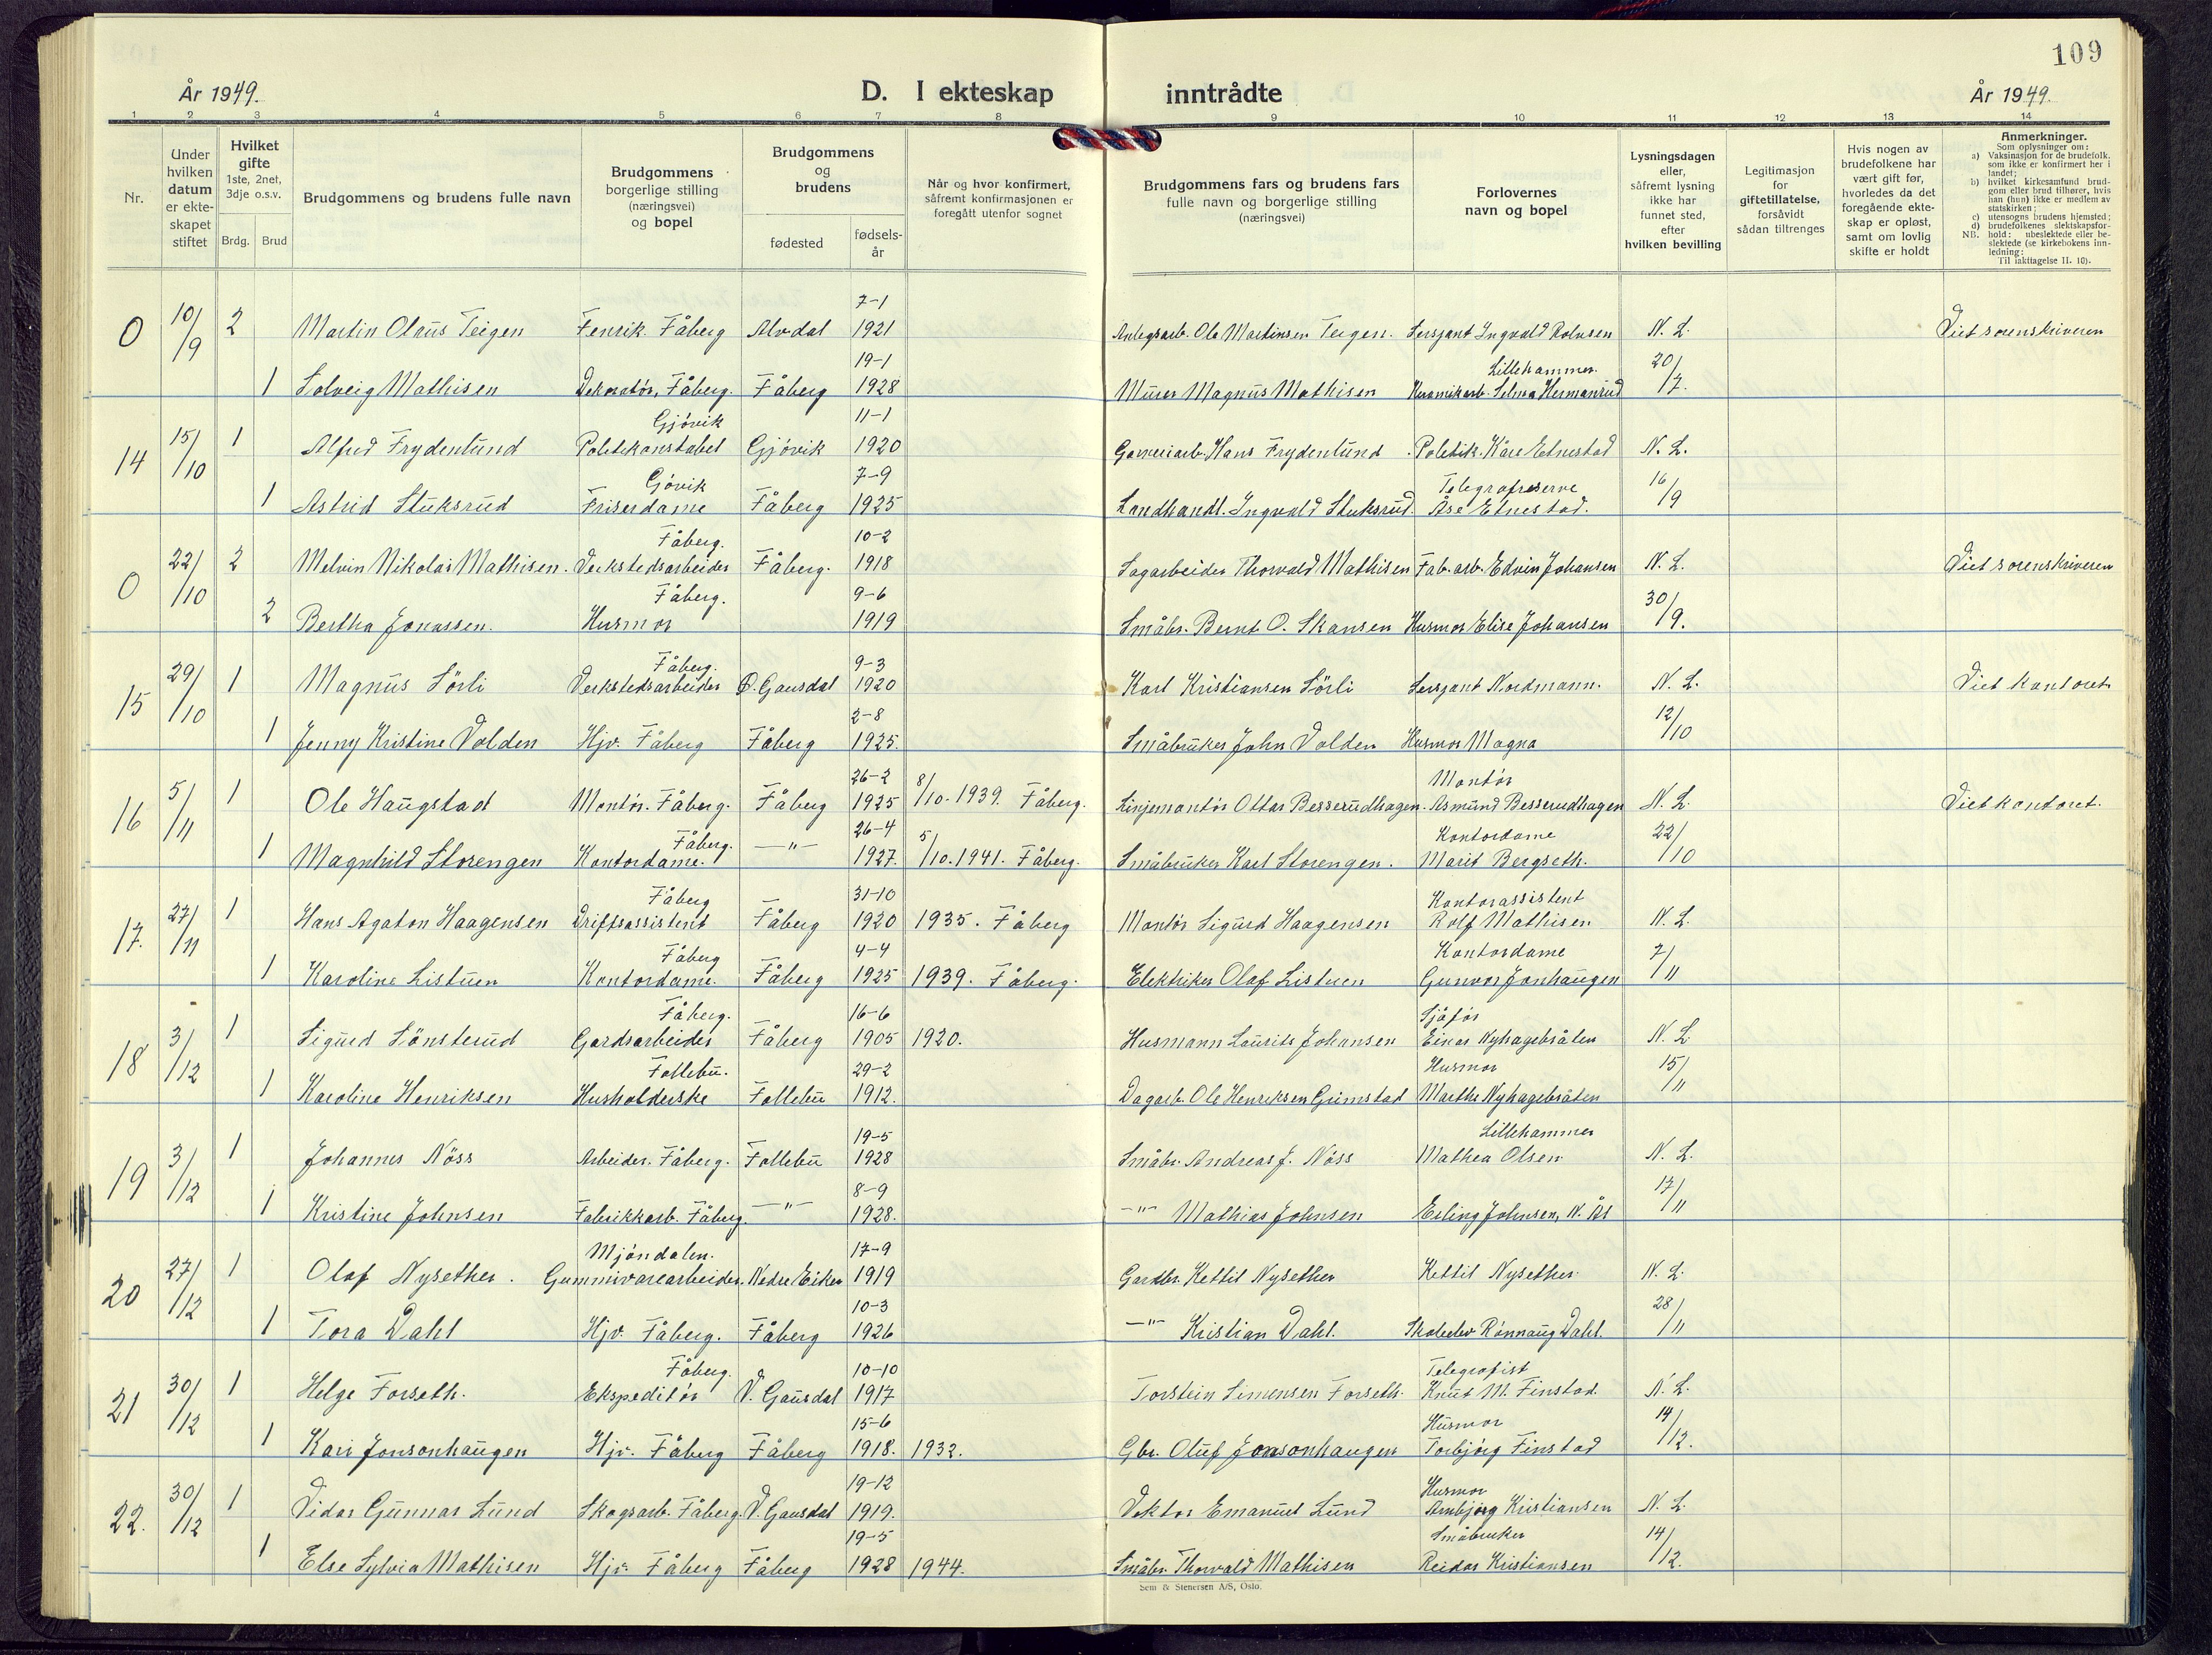 109
År 1949.
D. I ekteskap inntrådte
År 1949.
1 2 3 4 5 6 7 8 9 10 11 12 13 14
Nr.
Under hvilken datum er ekteskapet stiftet
Hvilket gifte 1ste, 2net, 3dje o.s.v.
Brdg. Brud
Brudgommens og brudens fulle navn
Brudgommens borgerlige stilling (næringsvei) og bopel
Brudgommens og brudens
fødested
fødsels-år
Når og hvor konfirmert, såfremt konfirmasjonen er foregått utenfor sognet
Brudgommens fars og brudens fars fulle navn og borgerlige stilling (næringsvei)
Forlovernes navn og bopel
Lysningsdagen eller, såfremt lysning ikke har funnet sted, efter hvilken bevilling
Legitimasjon for giftetillatelse, forsåvidt sådan tiltrenges
Hvis nogen av brudefolkene har vært gift før, hvorledes da det foregående ekteskap er opløst, samt om lovlig skifte er holdt
Anmerkninger.
Som oplysninger om:
a) Vaksinasjon for de brudefolk. som ikke er konfirmert her i landet;
b) hvilket kirkesamfund brudgom eller brud tilhører, hvis han (hun) ikke er medlem av statskirken;
c) utensogns brudens hjemsted;
d) brudefolkenes slektskapsforhold: ubeslektede eller beslektede (se kirkebokens innledning:
NB.
Til iakttagelse II. 10).
0 10/9 2 Martin Olaus Teigen Fenrik. Fåberg Alvdal 7-1 1921 Anlegsarb. Ole Martinsen Teigen. Sersjant Ingvald Rolvsen Lillehammer. N. L. Viet sorenskriveren
1 Solveig Mathisen Dekoratör, Fåberg. Fåberg 19-1 1928 Murer Magnus Mathisen Keramikarb. Selma Hermanrud 20/7.
14 15/10 1 Alfred Frydenlund Gjövik Politikonstabel Gjövik 11-1 1920 Garveriarb. Hans Frydenlund Politik. Kåre Etnestad N. L.
1 Astrid Stuksrud Gjövik Friserdame Fåberg 7-9 1925 Landhandl. Ingvald Stuksrud Telegrafreserve Åse Etnestad. 16/9
0 22/10 2 Melvin Nikolai Mathisen. Fåberg. Verkstedsarbeider Fåberg. 10-2 1918 Sagarbeider Thorvald Mathisen Fab. arb. Edvin Johansen N. L. Viet sorenskriveren
2 Bertha Jonassen. Fåberg. Husmor 9-6 1919 Småbr. Bernt O. Skansen Husmor Elise Johansen 30/9.
15 29/10 1 Magnus Sörli Fåberg. Verkstedsarbeider Ö. Gausdal 9-3 1920 Karl Kristiansen Sörli Sersjant Nordmann. N. L. Viet kontoret
1 Jenny Kristine Volden Hjv. Fåberg Fåberg 2-8 1925. Småbruker John Volden Husmor Magna 12/10
16 5/11 1 Ole Haugstad Montör. Fåberg. Fåberg 26-2 1925 8/10. 1939. Fåberg. Linjemontör Ottar Besserudhagen. Montör Asmund Besserudhagen N. L. Viet kontoret.
1 Magnhild Storengen Fåberg. Kontordame. —"— 26-4 1927. 5/10. 1941. Fåberg. Småbruker Karl Storengen. Kontordame Marit Bergseth. 22/10
17. 27/11 1 Hans Agaton Haagensen Fåberg Driftsassistent Fåberg 31-10 1920 1935. Fåberg Montör Sigurd Haagensen Kontorassistent Rolf Mathisen N. L.
1 Karoline Listuen Fåberg Kontordame. Fåberg 4-4 1925 1939. Fåberg. Elektriker Olaf Listuen Kontordame Gunvor Jonhaugen 7/11
18 3/12 1 Sigurd Sönsterud Fåberg. Gardsarbeider Fåberg 16-6 1905 1920. Husmann Laurits Johansen Sjåför Einar Nyhagebråten N. L
1 Karoline Henriksen Follebu. Husholderske Follebu 29-2 1912. Dagarb. Ole Henriksen Grimstad Husmor Marthe Nyhagebråten 15/11
19 3/12 1 Johannes Nöss Arbeider. Fåberg. Follebu 19-5 1928 Småbr. Andreas J. Nöss Lillehammer Mathea Olsen N. L.
1 Kristine Johnsen Fabrikkarb. Fåberg. —"— 8-9 1928. —"— Mathias Johnsen Erling Johnsen, N. Ål 17/11
20 27/12 1 Olaf Nysether. Mjöndalen. Gummivarearbeider. Nedre Eiker 17-9 1919 Gardbr. Kettil Nysether Kettil Nysether N. L.
1 Tora Dahl Hjv. Fåberg. Fåberg 10-3 1926 —"— Kristian Dahl. Skoleelev Rönnaug Dahl. 28/11
21 30/12 1 Helge Forseth. Fåberg. Ekspeditör V. Gausdal 10-10 1917 Torstein Simensen Forseth. Telegrafist Knut M. Finstad. N. L.
1 Kari Jonsonhaugen Hjv. Fåberg Fåberg 15-6 1918. 1932. Gbr. Oluf Jonsonhaugen Husmor Torbjörg Finstad 14/12.
22. 30/12 1 Vidar Gunnar Lund Skogsarb. Fåberg. V. Gausdal 19-12 1919. Vektor Emanuel Lund Husmor Arnbjörg Kristiansen N. L.
1 Else Sylvia Mathisen Hjv. Fåberg Fåberg 19-5 1928 1944. Småbr. Thorvald Mathisen Småbruker Reidar Kristiansen 14/12.
Sem & Stenersen A/S, Oslo.